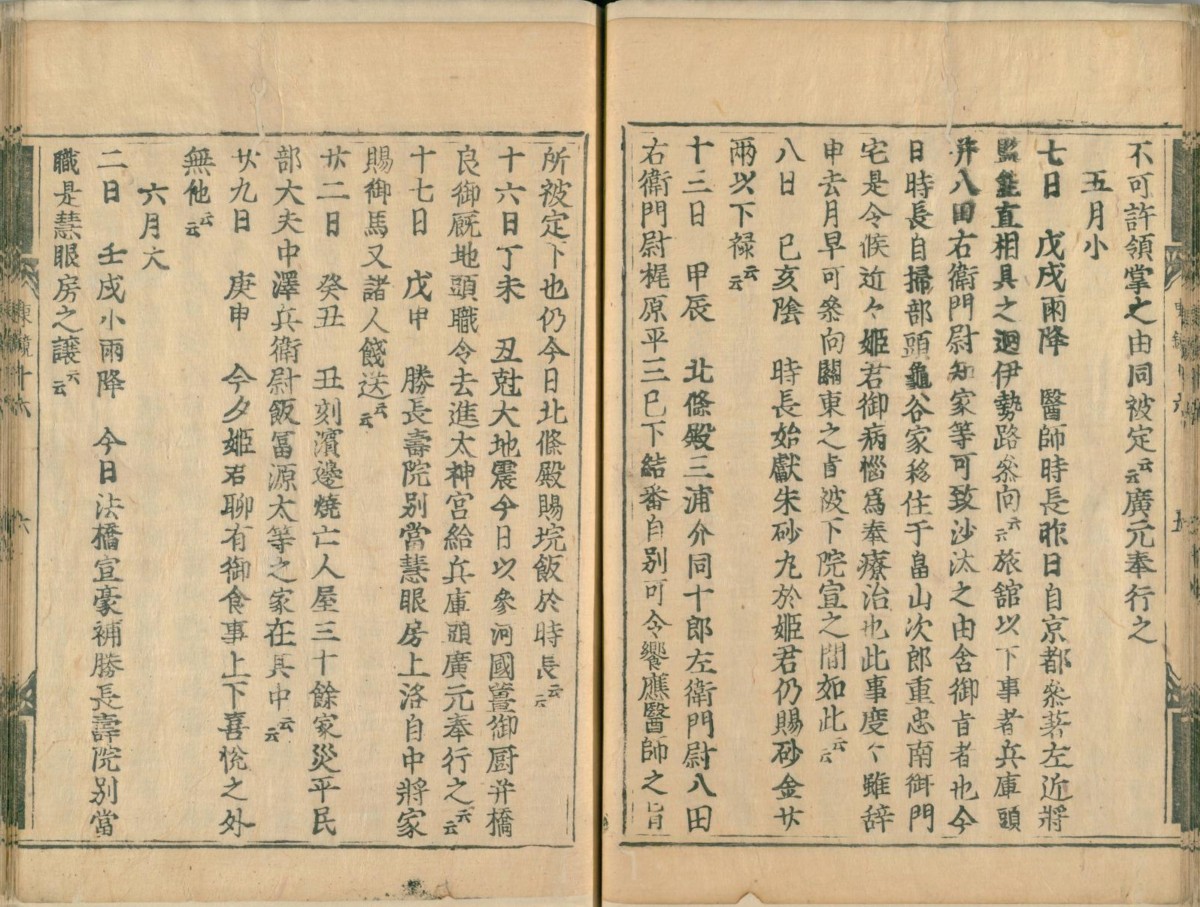 不可許領掌之由同被定云云廣元奉行之
五月小
七日　戊戌雨降　醫師時長昨日自京都參著左近將
監能直相具之廻伊勢路參向云云旅舘以下事者兵庫頭
并八田右衛門尉知家等可致沙汰之由含御旨者也今
日時長自掃部頭龜谷家移住于畠山次郎重忠南御門
宅是令候近々姬君御病惱爲奉療治也此事度々雖辞
申去月早可參向關東之旨被下院宣之間如此云云
八日　己亥陰　時長始獻朱砂丸於姬君仍賜砂金廿
兩以下禄云云
十三日　甲辰　北條殿三浦介同十郎左衛門尉八田
右衛門尉梶原平三已下結番自別可令饗應醫師之旨
所被定下也仍今日北條殿賜埦飯於時長云云
十六日丁未　丑尅大地震今日以參河國薑御厨并橋
良御厩地頭職令去進太神宮給兵庫頭廣元奉行之云云
十七日　戊申　勝長壽院別當慧眼房上洛自中將家
賜御馬又諸人餞送云云
廿二日　癸丑　丑刻濱邊燒亡人屋三十餘家災平民
部大夫中澤兵衛尉飯冨源太等之家在其中云云
廿九日　庚申　今夕姬君聊有御食事上下喜悅之外
無他云云
六月大
二日　壬戌小雨降　今日法橋宣豪補勝長壽院別當
職是慧眼房之讓云云
東鏡十六
六
五